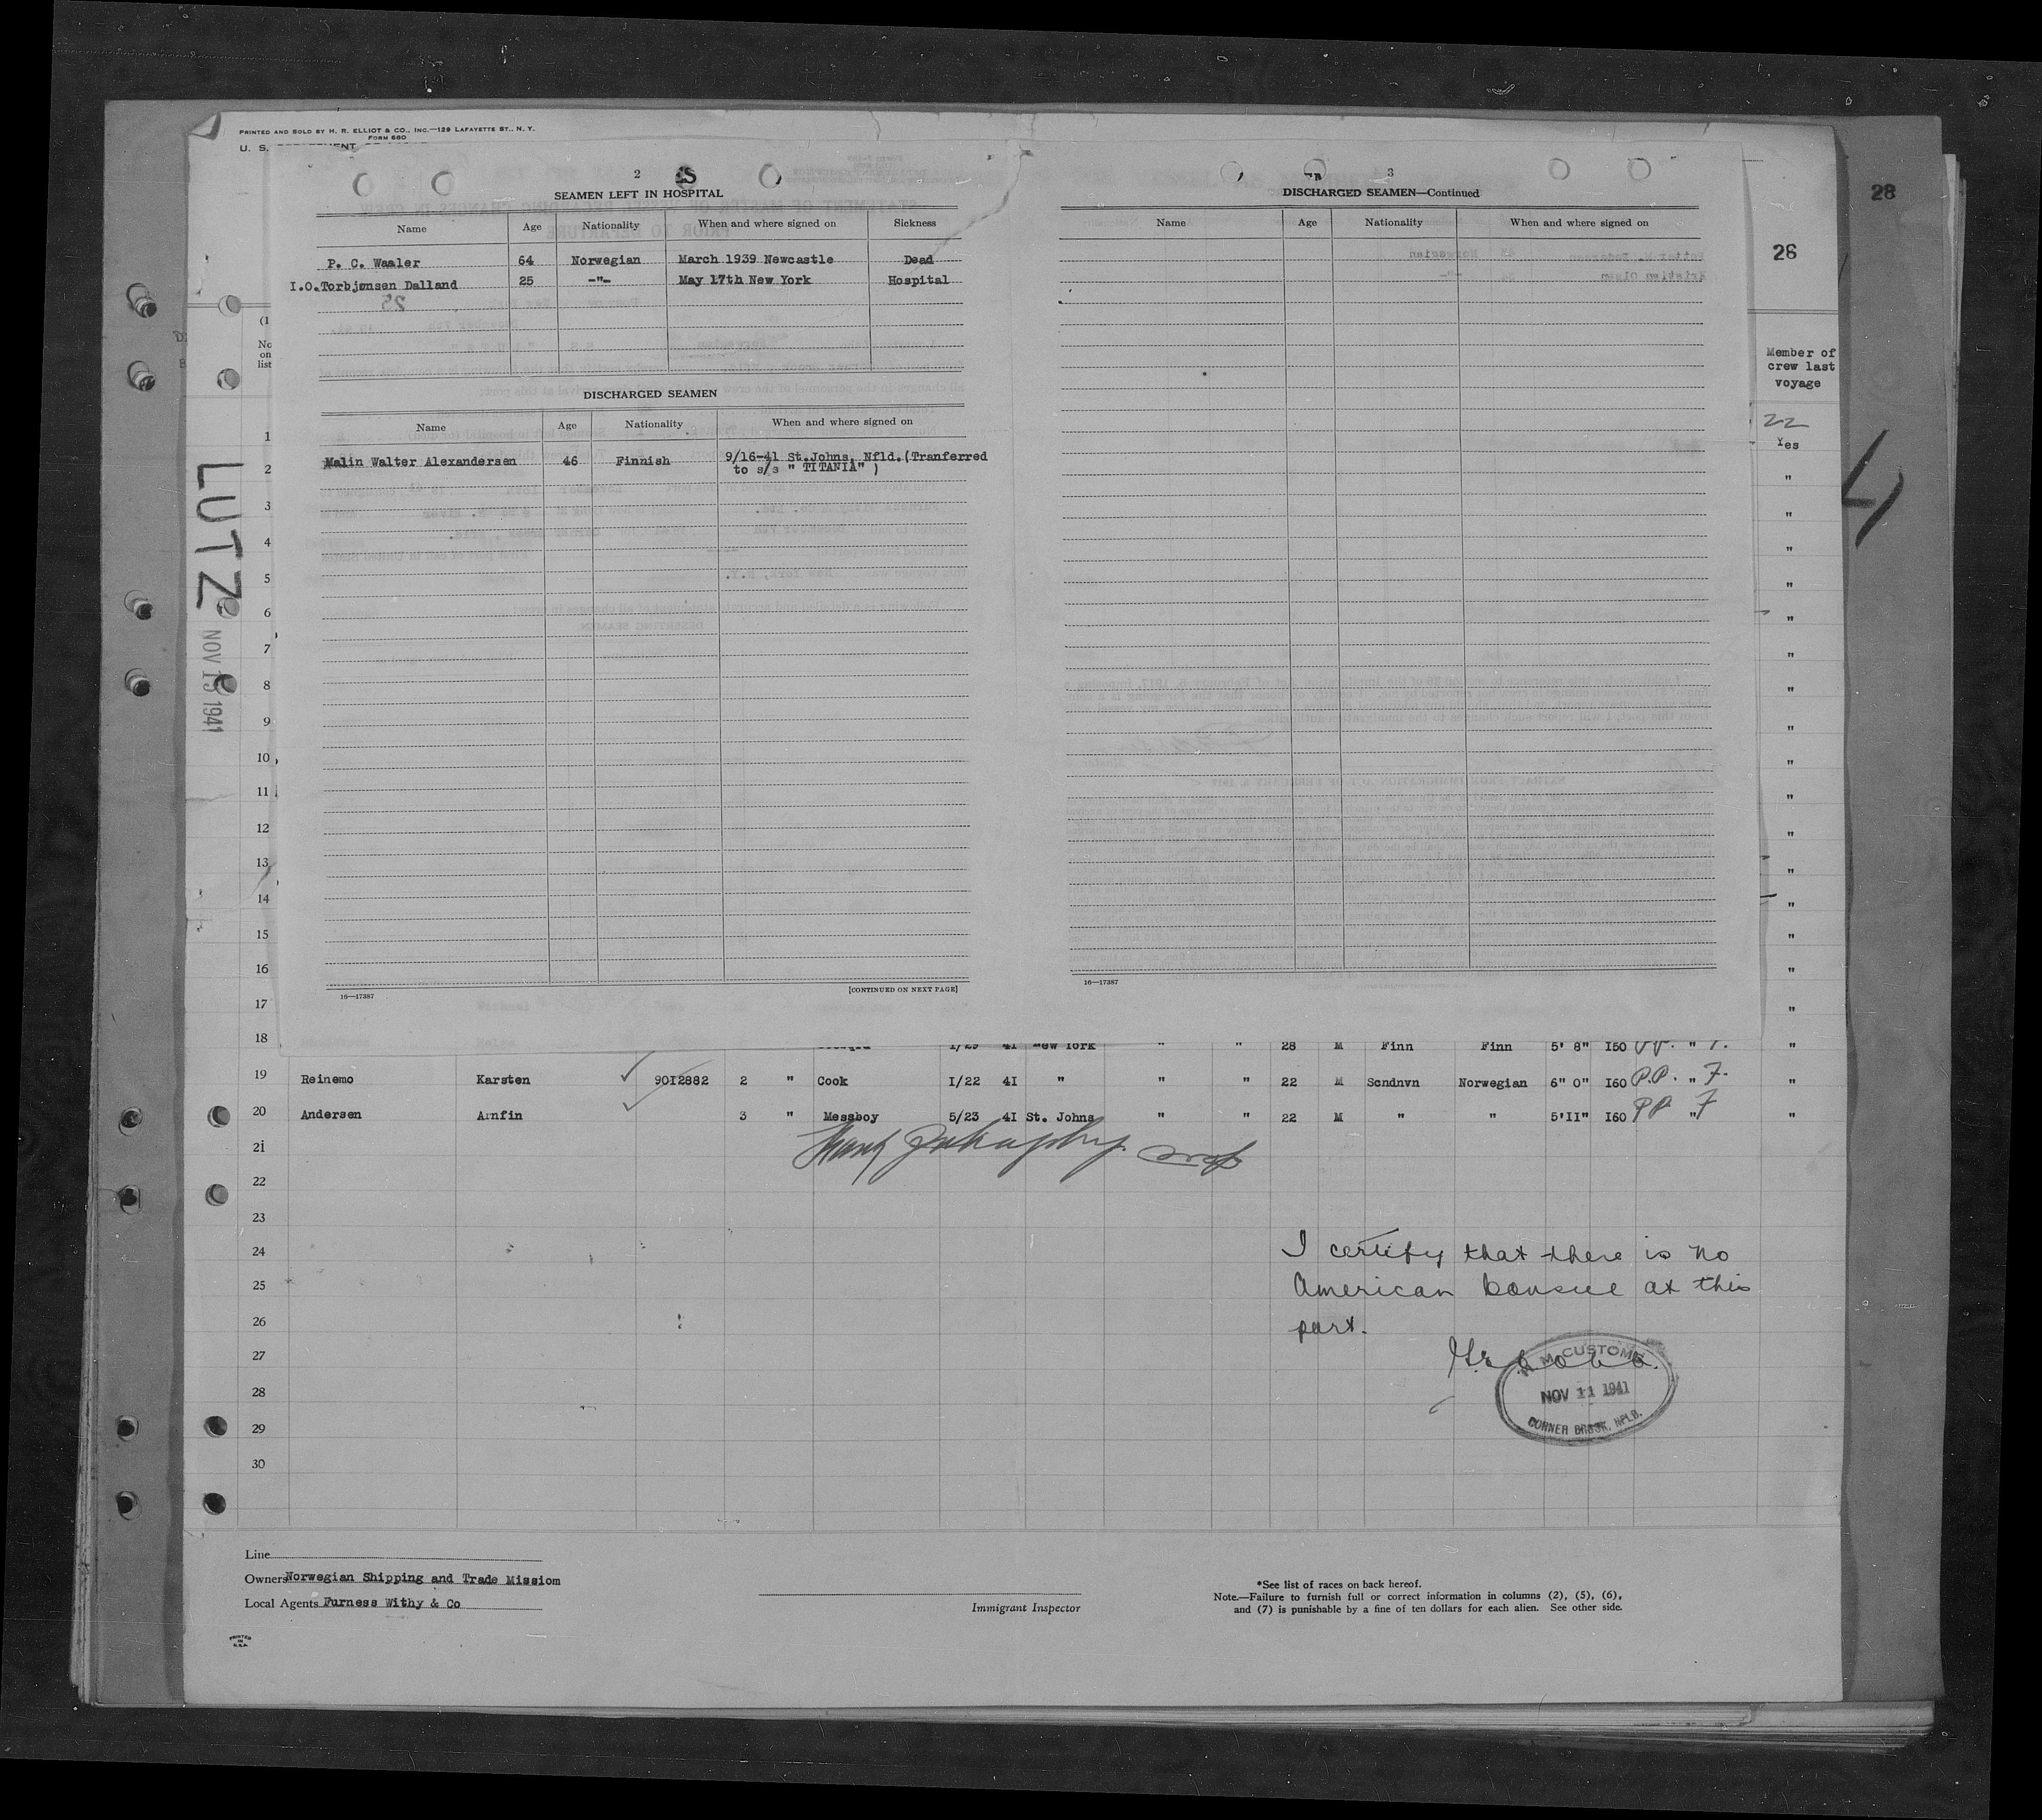 PRINTED AND SOLD BY H. R. ELLIOT & CO., INC.—129 LAFAYETTE ST., N. Y.
FORM 680
U. S.
2
SEAMEN LEFT IN HOSPITAL
Name Age Nationality When and where signed on Sickness
P. C. Waaler 64 Norwegian March 1939 Newcastle Dead
I.O.Torbjønsen Dalland 25 -"- May 17th New York Hospital
DISCHARGED SEAMEN
Name Age Nationality When and where signed on
Malin Walter Alexandersen 46 Finnish 9/16-41 St.Johns, Nfld.(Tranferred
to s/s " TITANIA" )
16—17387 [CONTINUED ON NEXT PAGE]
3
DISCHARGED SEAMEN—Continued
Name Age Nationality When and where signed on
16—17387
28
28
(1
No
on
list
Member of
crew last
voyage
22
LUTZ
NOV 13 1941
4
1 Yes
2 "
3 "
4 "
5 "
6 "
7 "
8 "
9 "
10 "
11 "
12 "
13 "
14 "
15 "
16 "
17 "
18 1/29 41 New York " " 28 M Finn Finn 5' 8" I50 P.P. " F. "
19 Reinemo Karsten 90I2882 2 " Cook I/22 4I " " " 22 M Scndnvn Norwegian 6" 0" I60 P.P. " F. "
20 Andersen Arnfin 3 " Messboy 5/23 4I St. Johns " " 22 M " " 5'II" I60 P.P. " F "
21
22
23
24
25
26
27
28
29
30
I certify that there is no
American Consul at this
port.
H. M. CUSTOMS
NOV 11 1941
CORNER BROOK, NFLD.
Line
Owners Norwegian Shipping and Trade Missiom
Local Agents Furness Withy & Co
Immigrant Inspector
*See list of races on back hereof.
Note.—Failure to furnish full or correct information in columns (2), (5), (6),
and (7) is punishable by a fine of ten dollars for each alien. See other side.
PRINTED
IN
U.S.A.